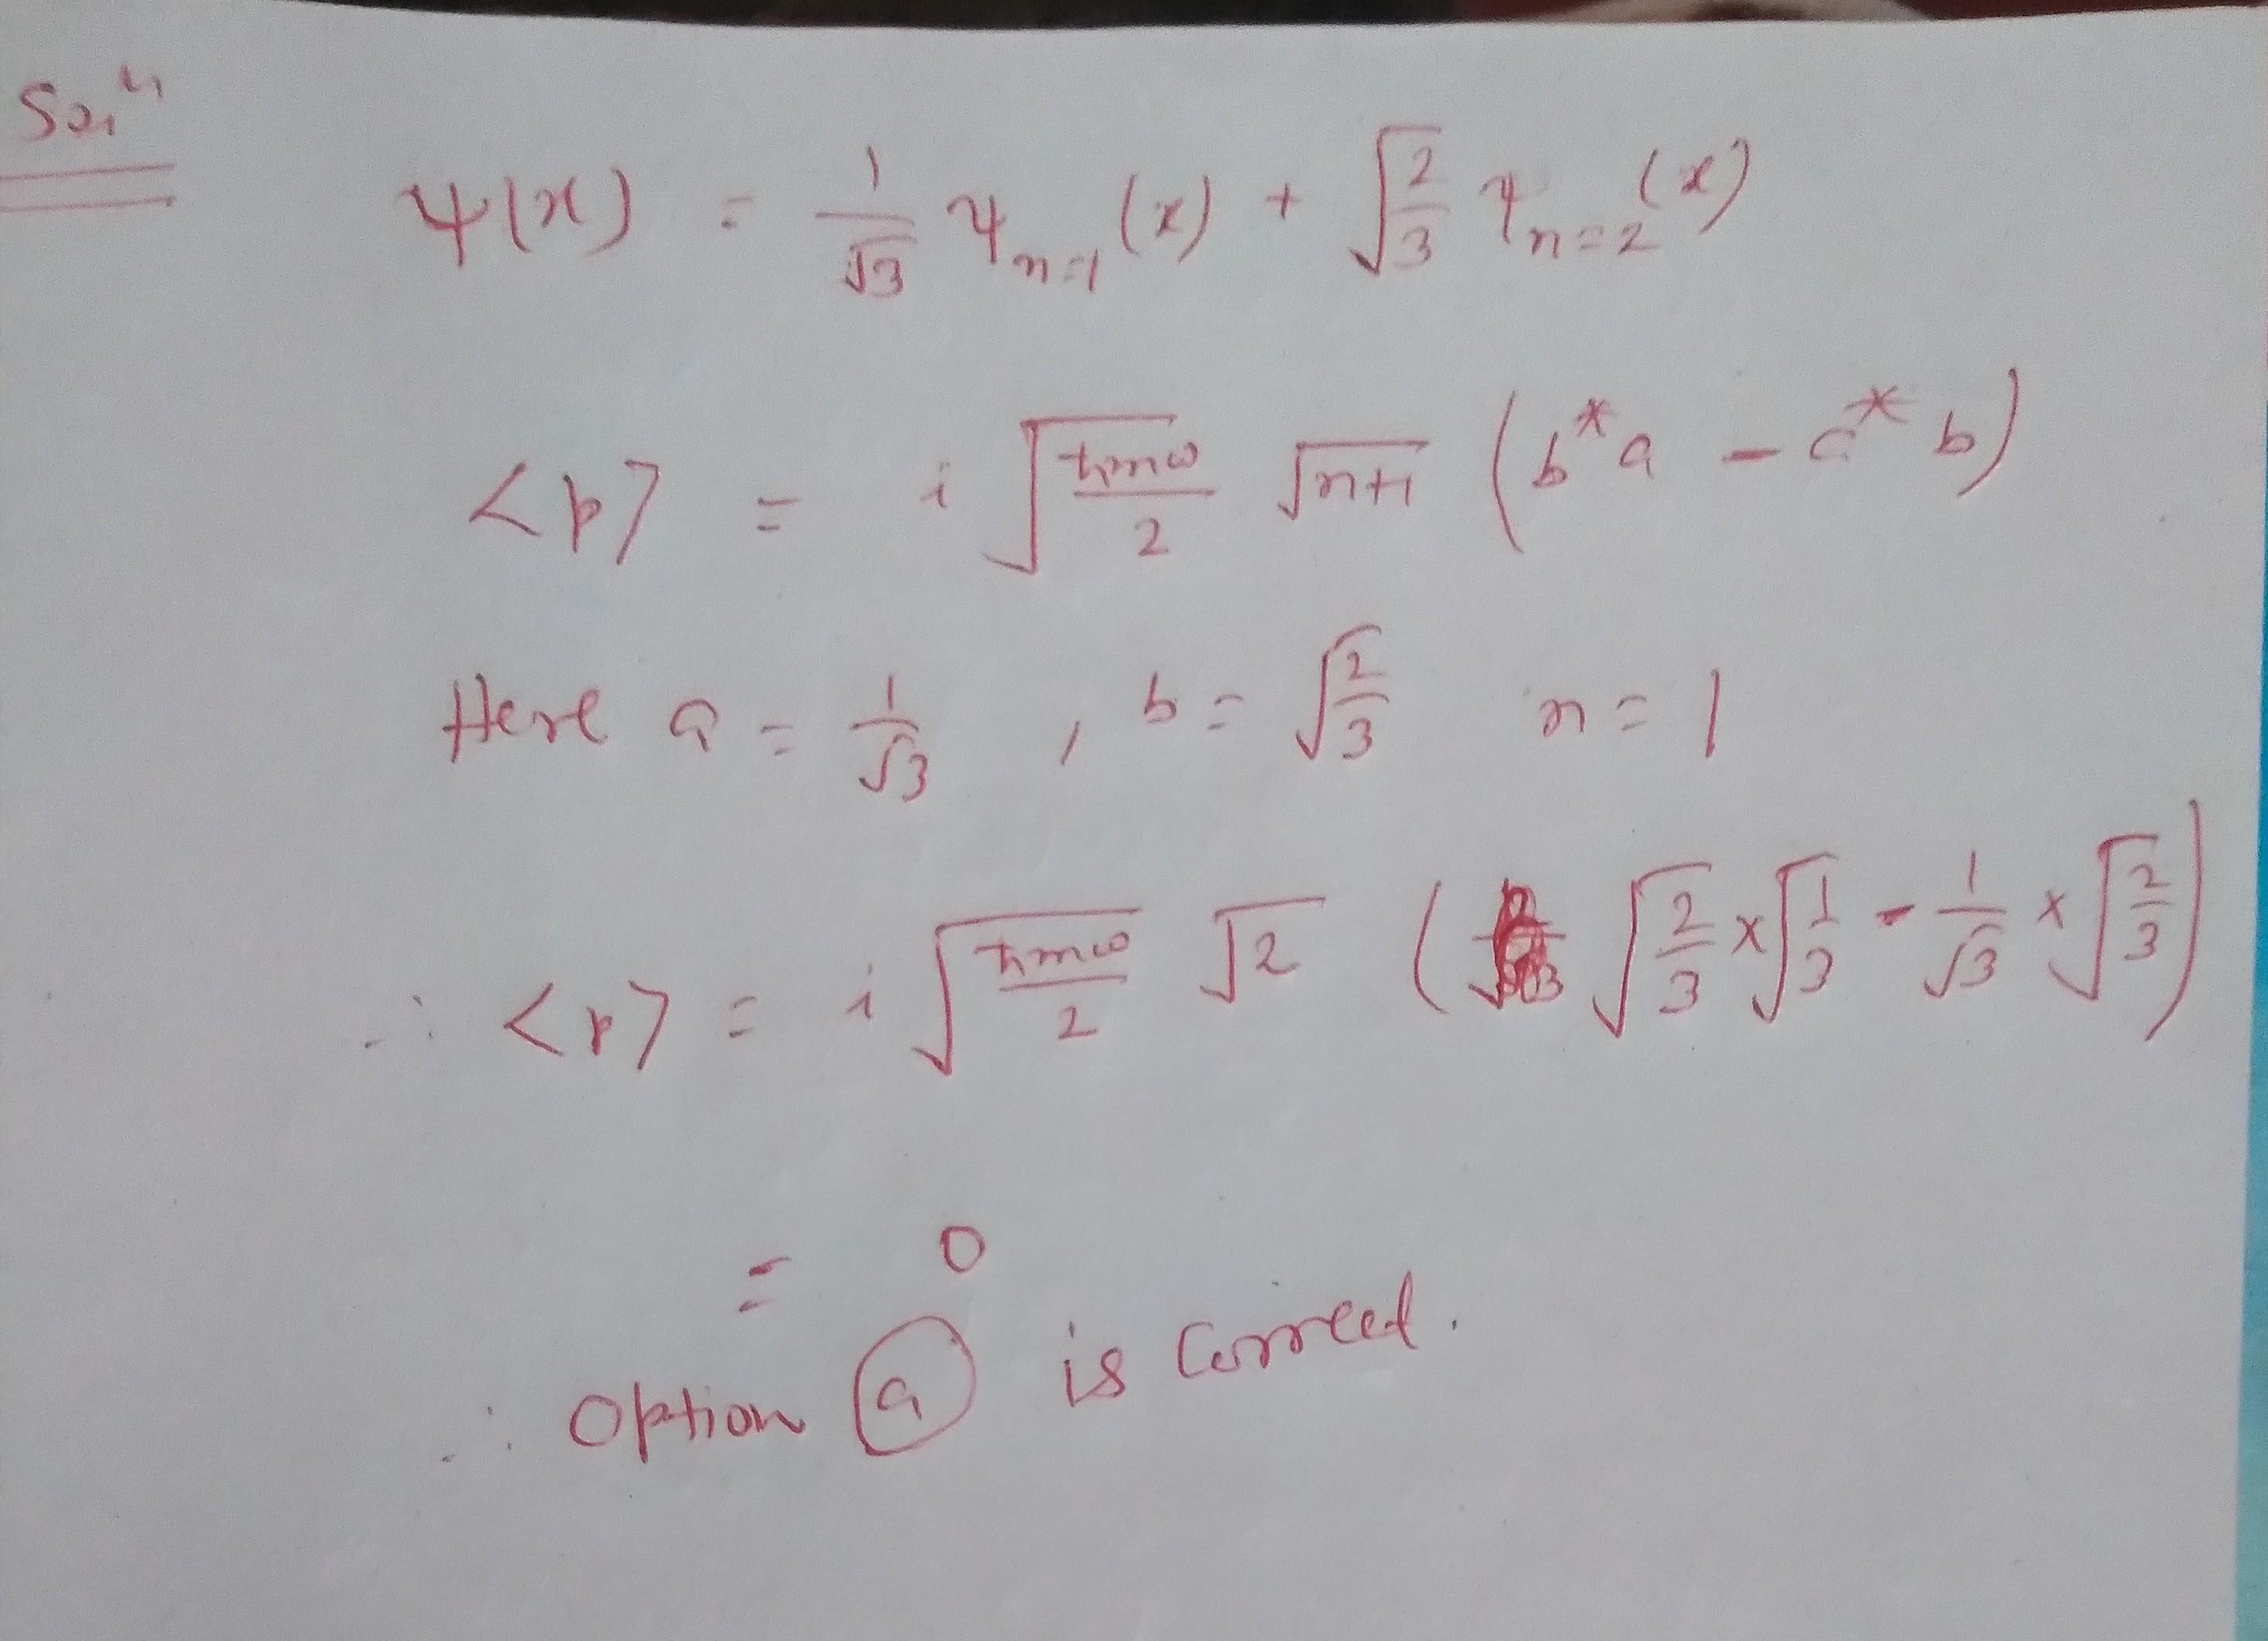 Sol^n
ψ(x) = 1/√3 ψ_{n=1}(x) + √(2/3) ψ_{n=2}(x)
<p> = i √(ħmω/2) √(n+1) (b*a - a*b)
Here a = 1/√3 , b = √(2/3) n = 1
∴ <p> = i √(ħmω/2) √2 ( √(2/3) × √(1/3) - 1/√3 × √(2/3) )
= 0
∴ Option (a) is correct.